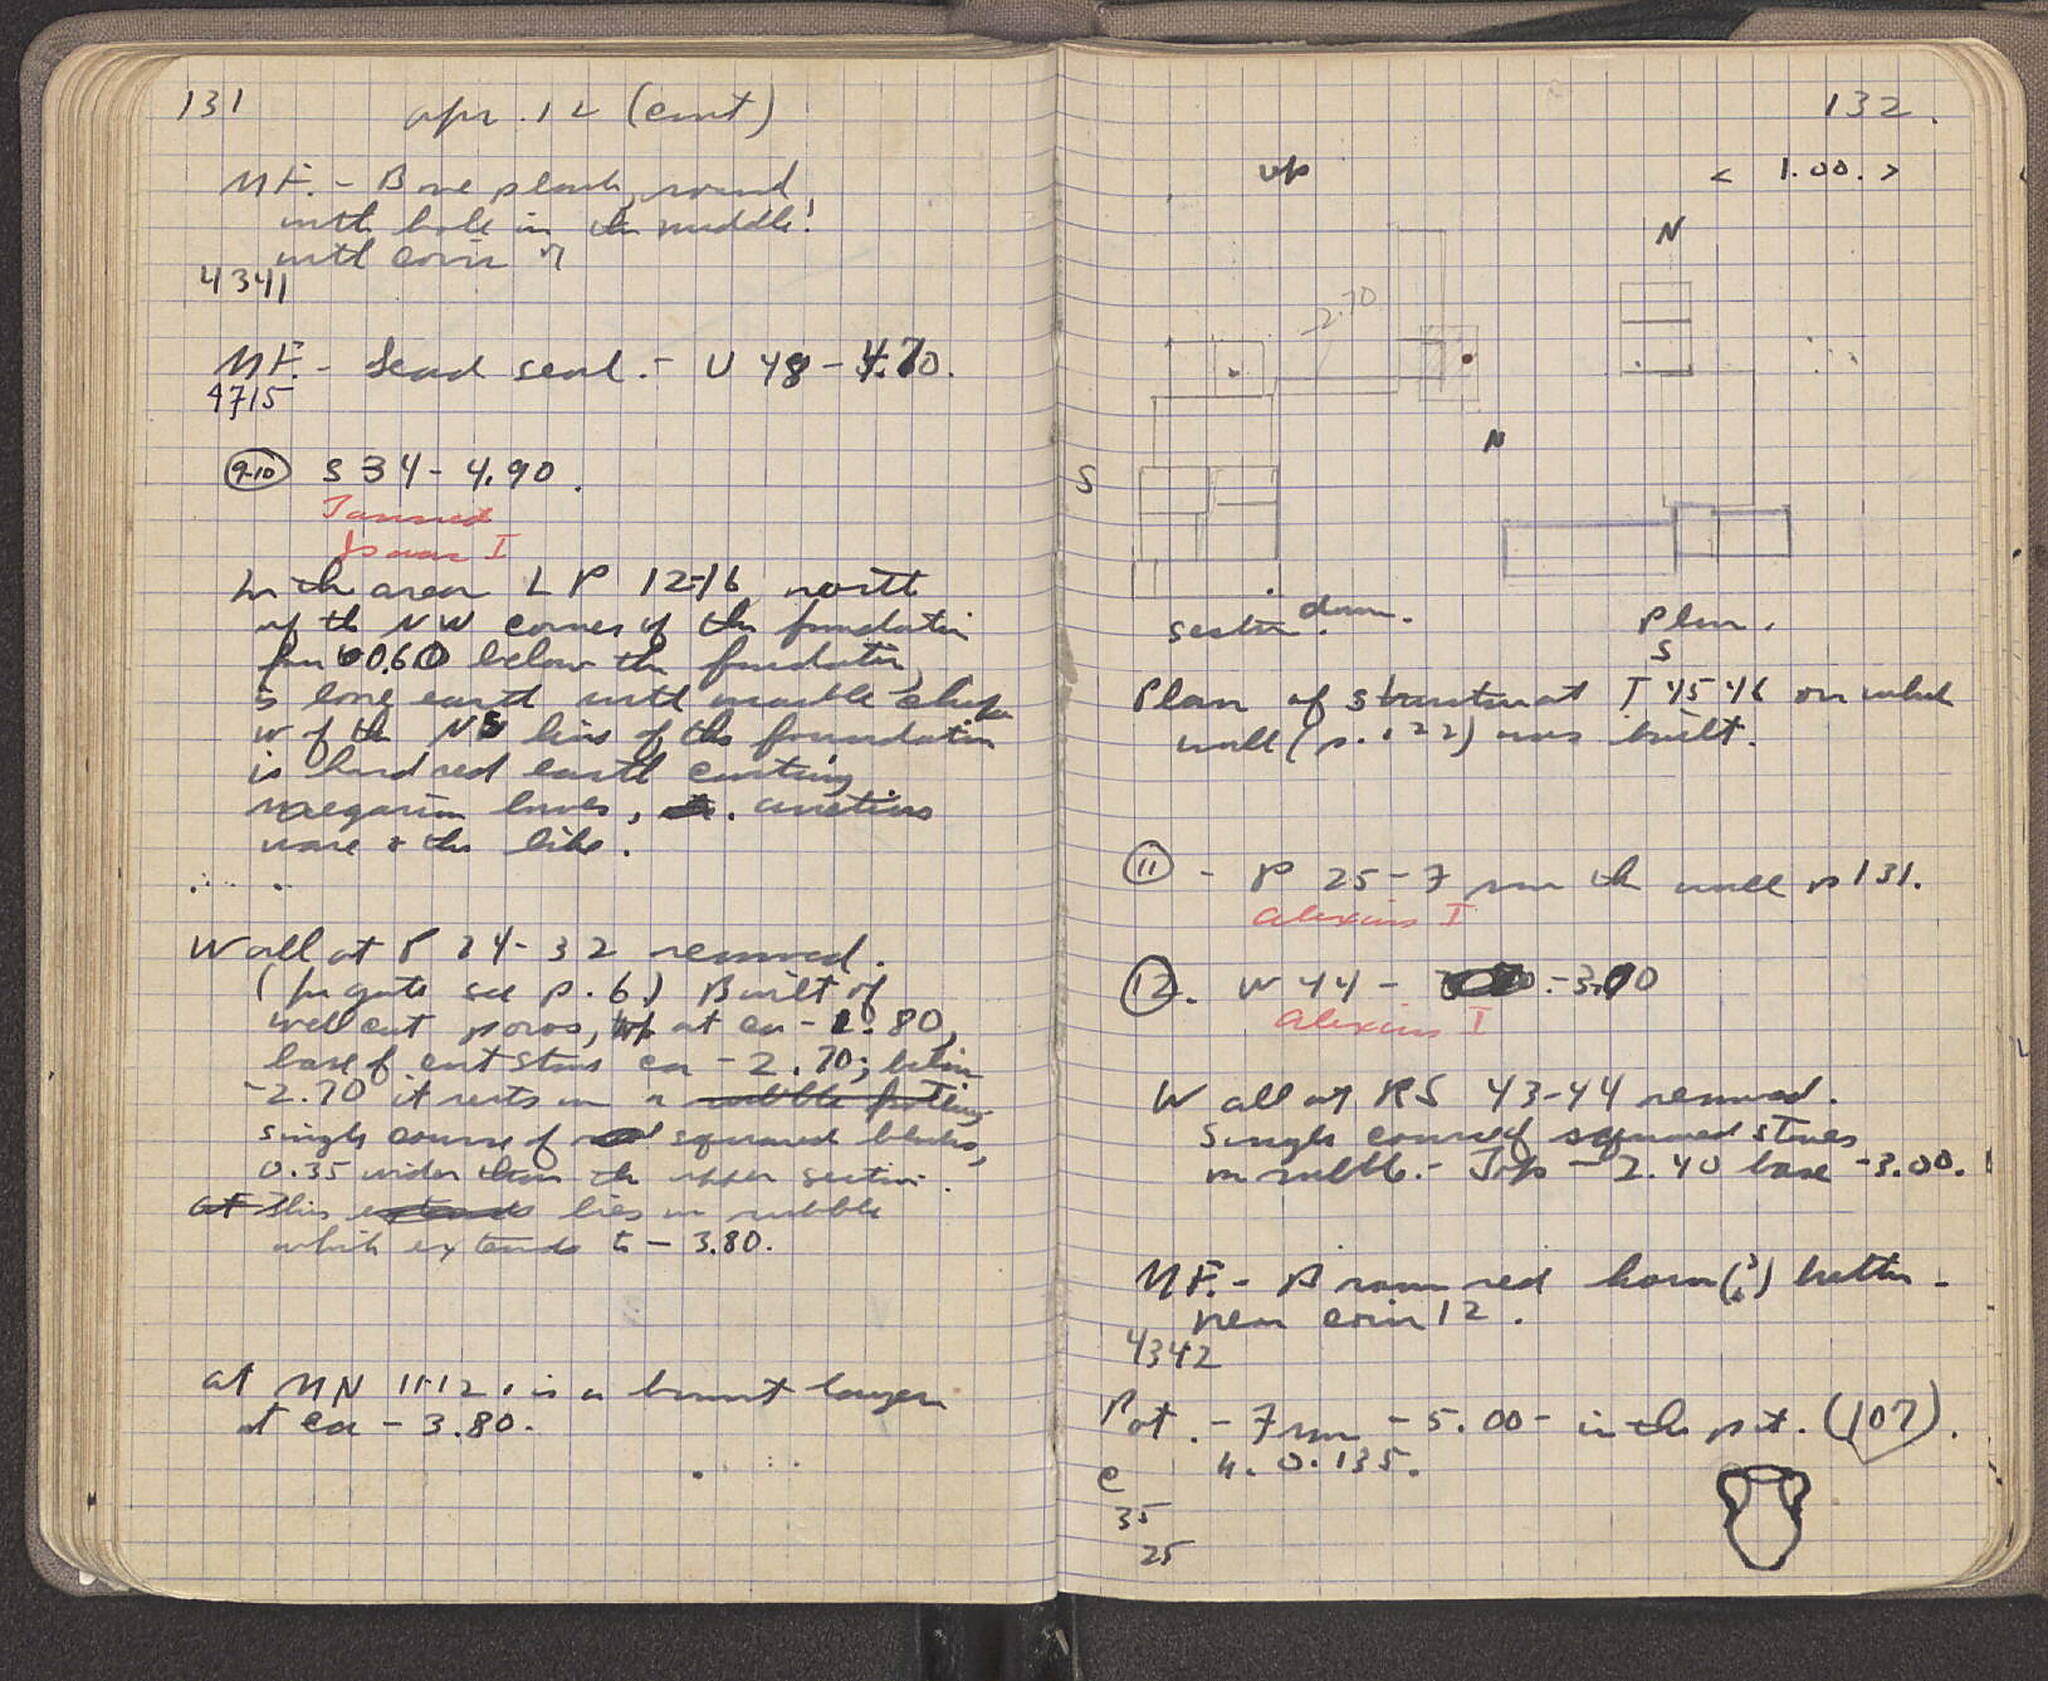 131
Apr. 12 (cont)
MF. - Bone plank, round
with hole in the middle!
with coin 7
4341
MF. - Lead seal. - U 48 - 4.70.
4715
9-10 S 34 - 4.90.
Isaac I
In the area LP 12-16 north
of the NW corner of the foundation
0.60 below the foundation,
is long earth with marble chips
W of the NS line of the foundation
is hard red earth containing
megarian bowls, arretine
ware & the like.
Wall at P 24-32 removed.
(for gate see p. 6) Built of
well cut poros, top at ca - 1.80,
base of cut stone ca - 2.70; below
-2.70 it rests on a rubble footing
single course of squared blocks,
0.35 wider than the upper section.
at This extends lies on rubble
which extends to - 3.80.
at MN 11-12, is a burnt layer
at ca - 3.80.
132.
up
< 1.00. >
N
-2.70
N
S
section.
down.
Plan.
S
Plan of structure at T 45 46 on which
wall (p. 122) was built.
11 - P 25 - 7 from the wall p 131.
Alexius I
12. W 44 - - 3.10
Alexius I
Wall at RS 43-44 removed.
Single course of squared stones
on rubble. - Top - 2.40 base - 3.00.
MF. - A rounded horn(?) button -
near coin 12.
4342
Pot. - From - 5.00 - in the pit. (107).
h. 0.135.
C
35
25